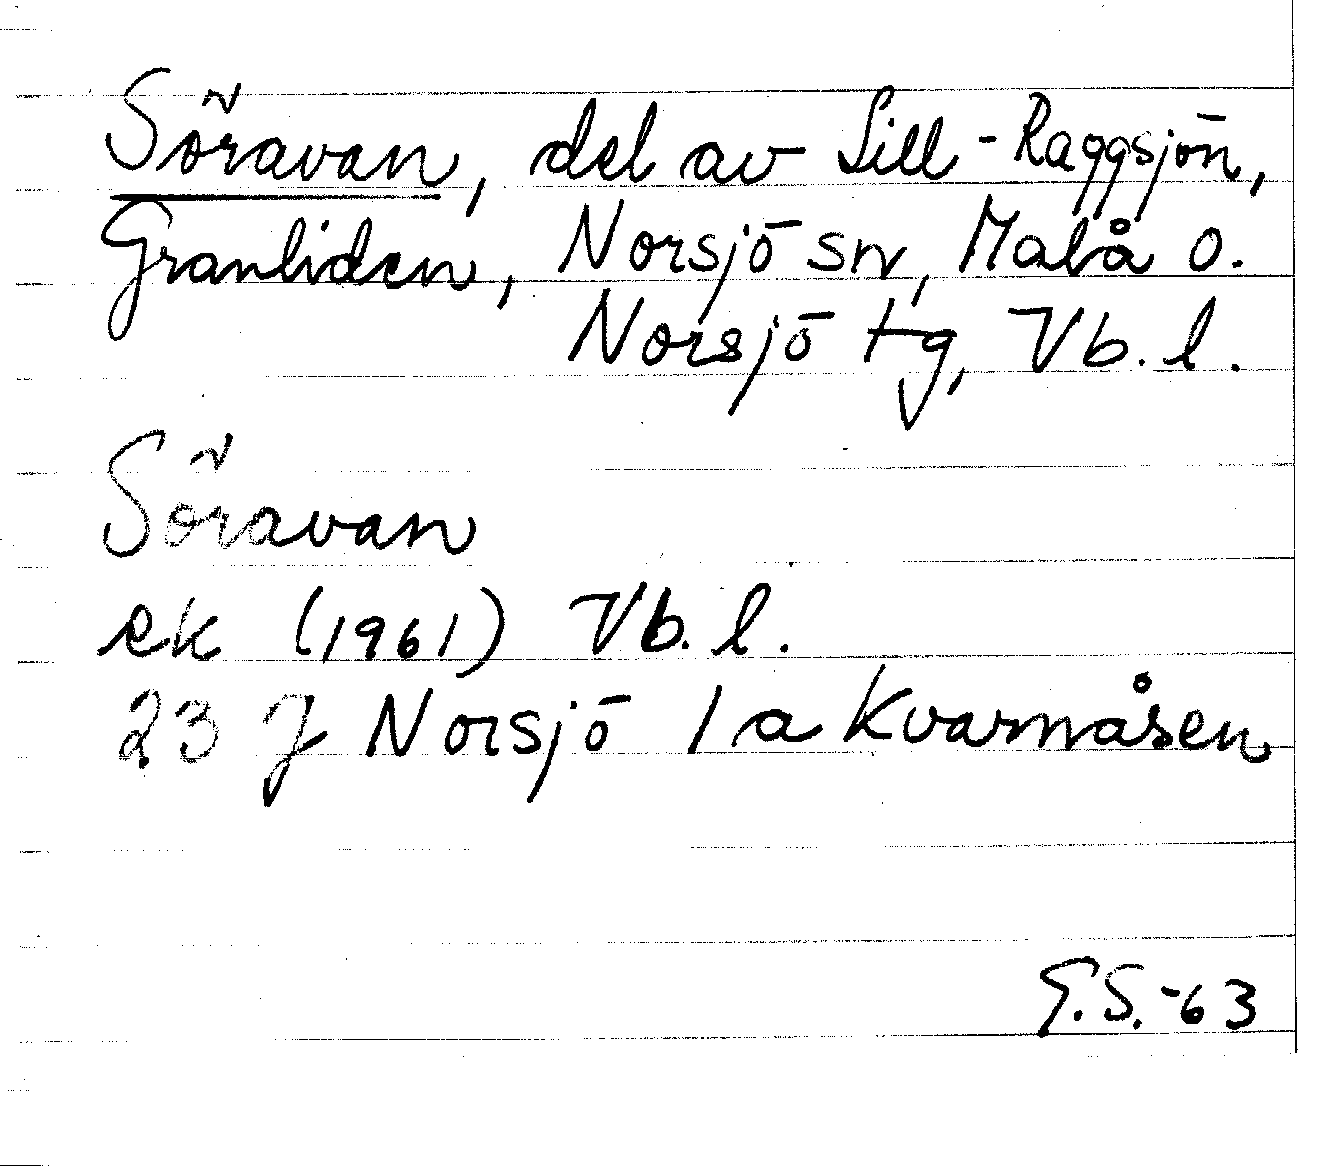 Söravan, del av Lill-Raggsjön,
Granliden, Norsjö sn, Malå o.
Norsjö tg, Vb. l.
Söravan
ek (1961) Vb. l.
23 J Norsjö 1 a Kvarnåsen
G.S.-63